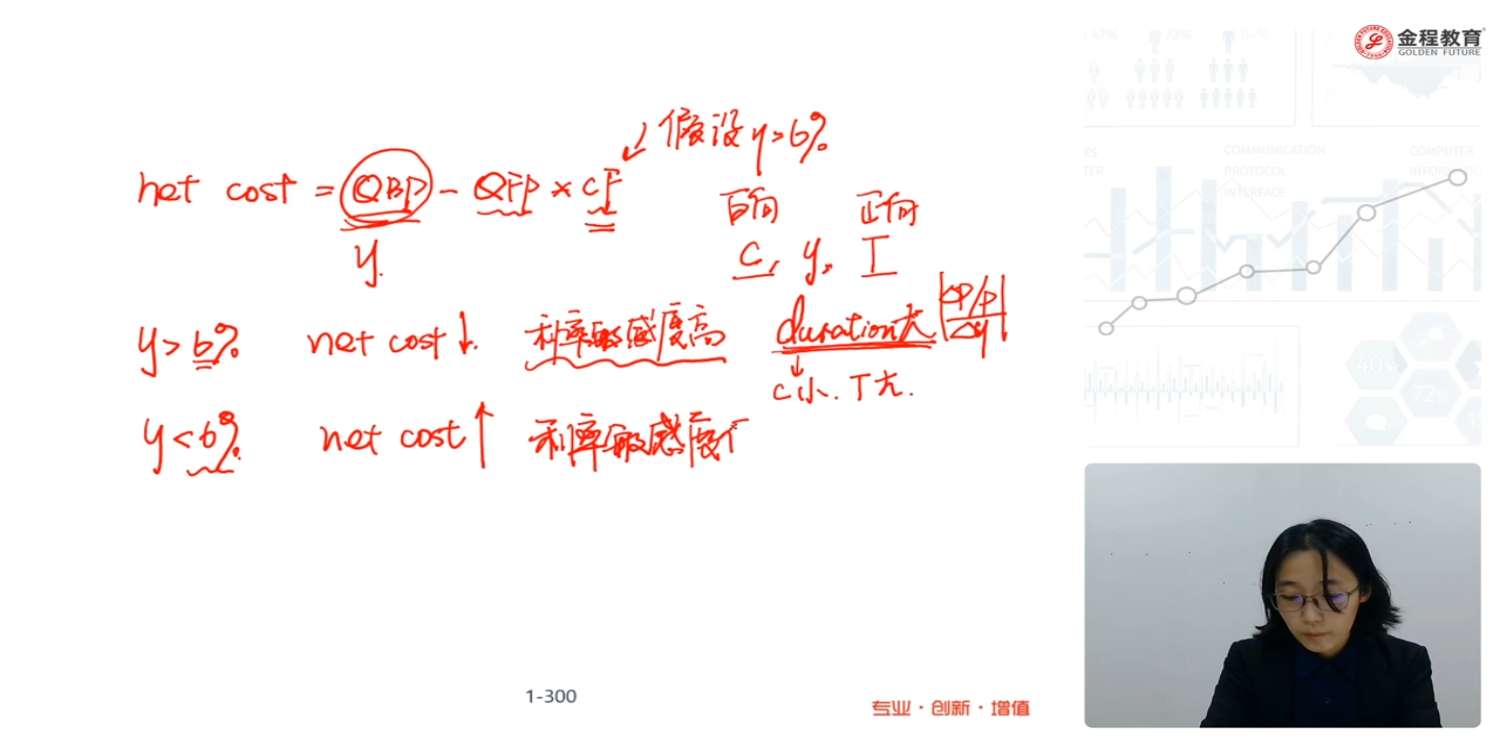 金程教育
GOLDEN FUTURE
COMMUNICATION
PROTOCOL
INTERFACE
COMPUTER
40%
72%
假设 y=6%
net cost = QBP - QFP × CF
y.
反向 正向
C, y, T
y > 6% net cost ↓. 利率敏感度高 duration大 |ΔP/P / Δy|
↓
C小. T大.
y < 6% net cost ↑ 利率敏感度
1-300
专业·创新·增值